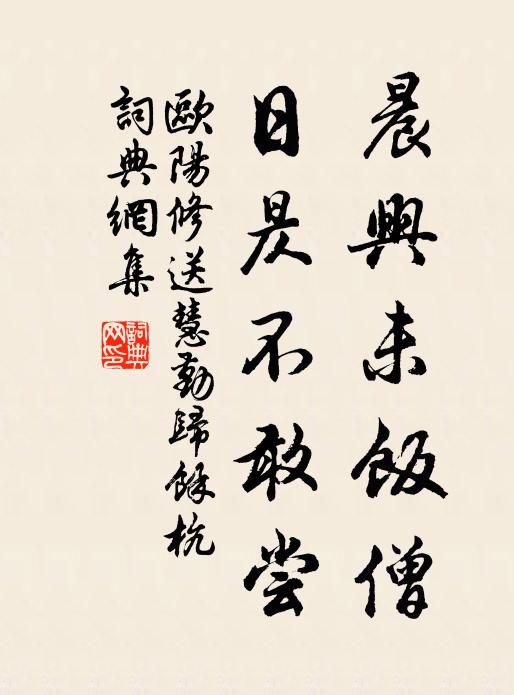 晨興未飯僧
日昃不敢尝
歐陽修送慧勤歸餘杭
詞典網集
詞典网印